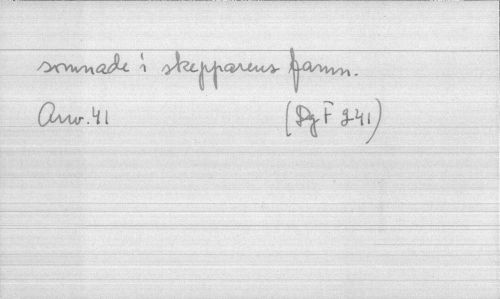 somnade i skepparens famn.
Arw. 41 (DgF 241)